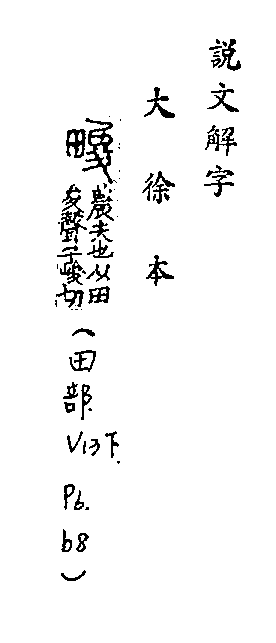 説文解字
大徐本
畯
農夫也从田
夋聲子峻切
(田部. V13下. P6. b8)